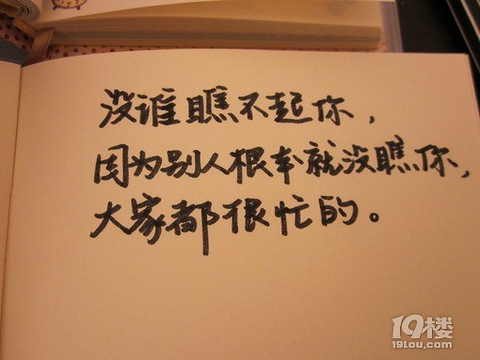 没谁瞧不起你，
因为别人根本就没瞧你，
大家都很忙的。
19楼
19lou.com